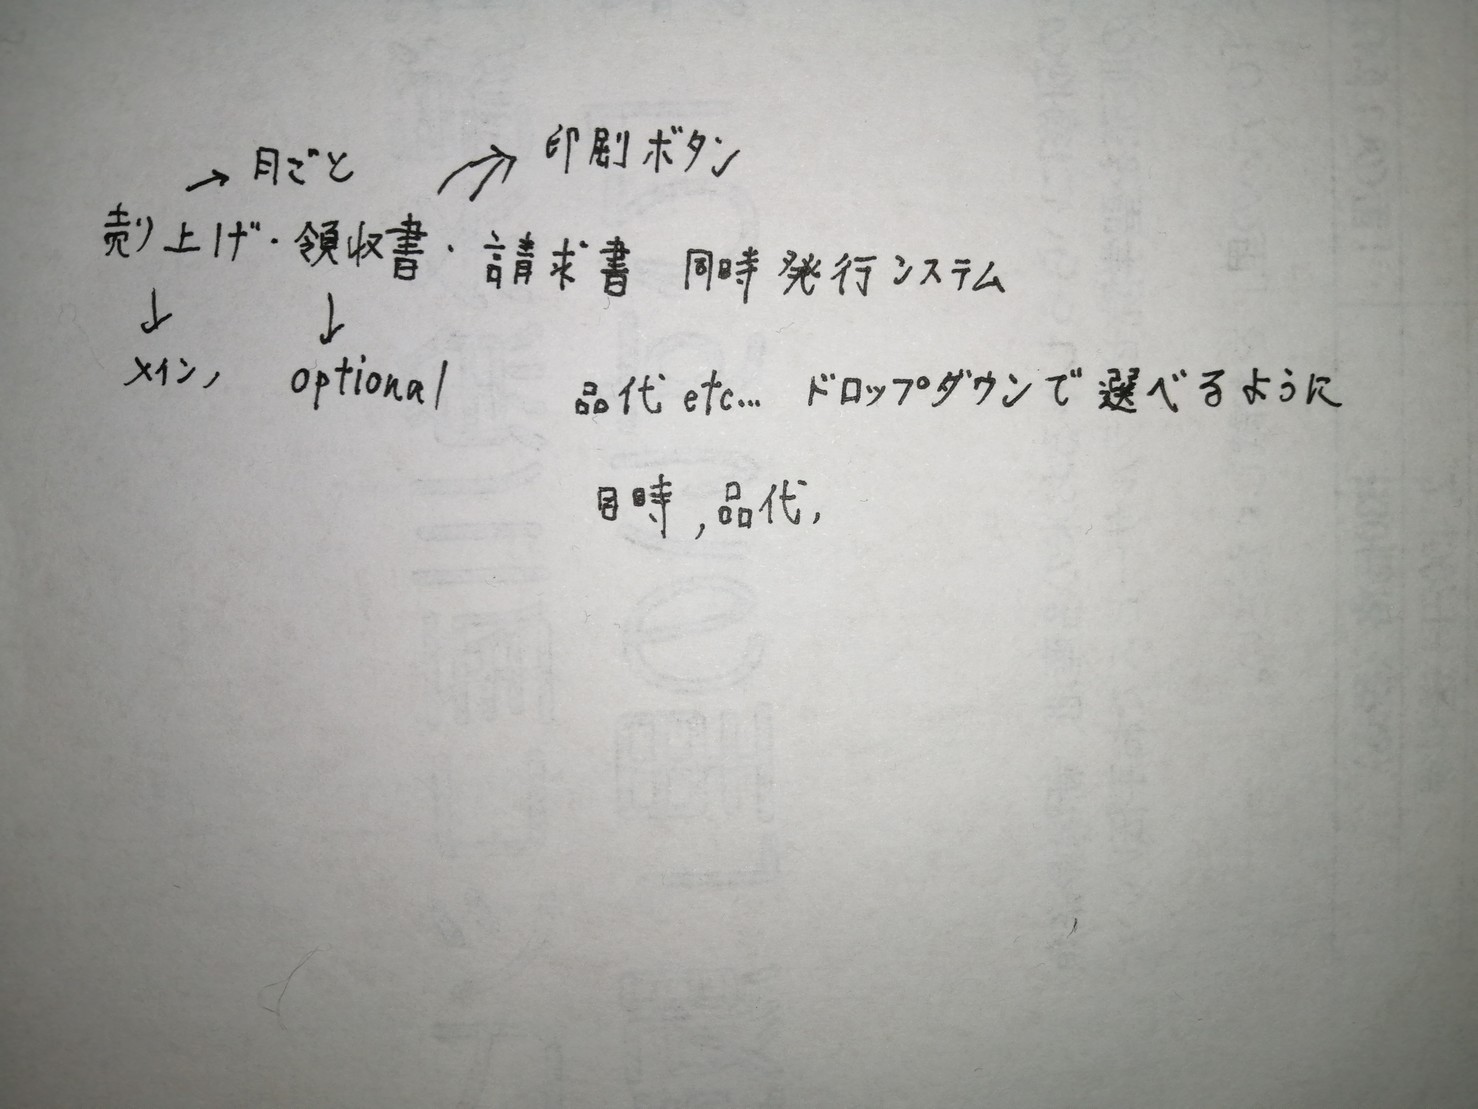 →月ごと
印刷ボタン
売り上げ・領収書・請求書 同時発行システム
↓ ↓
メイン, optional
品代 etc... ドロップダウンで選べるように
日時,品代,